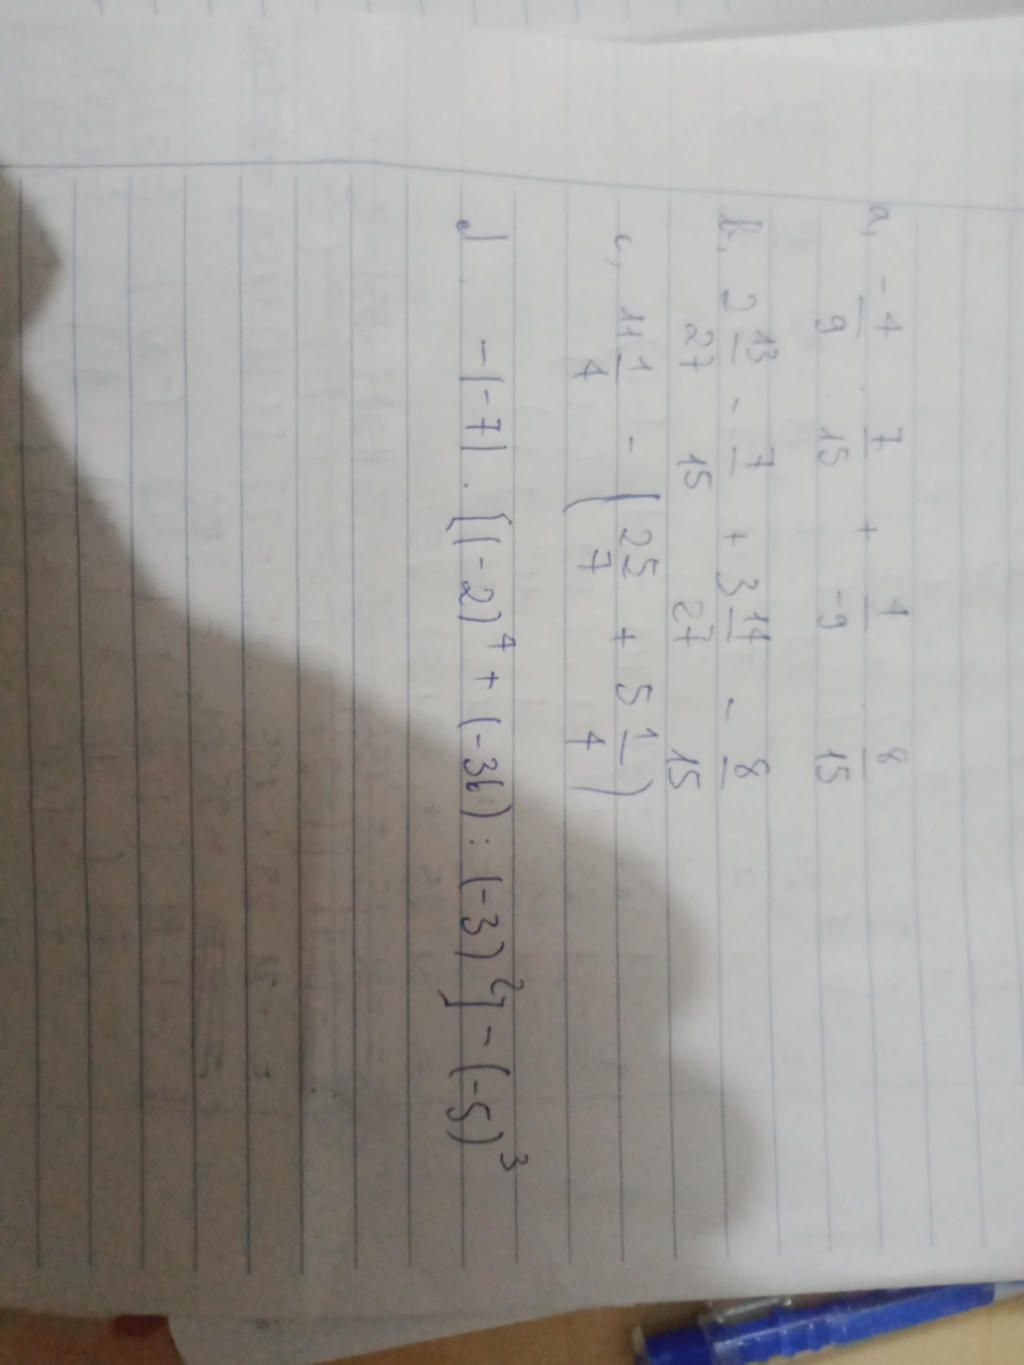 a, -4/9 . 7/15 + 4/-9 . 8/15
b, 2 13/27 - 7/15 + 3 14/27 - 8/15
c, 11 1/4 - ( 2 5/7 + 5 1/4 )
d, -|-7| . [(-2)^4 + (-36) : (-3)^2] - (-5)^3